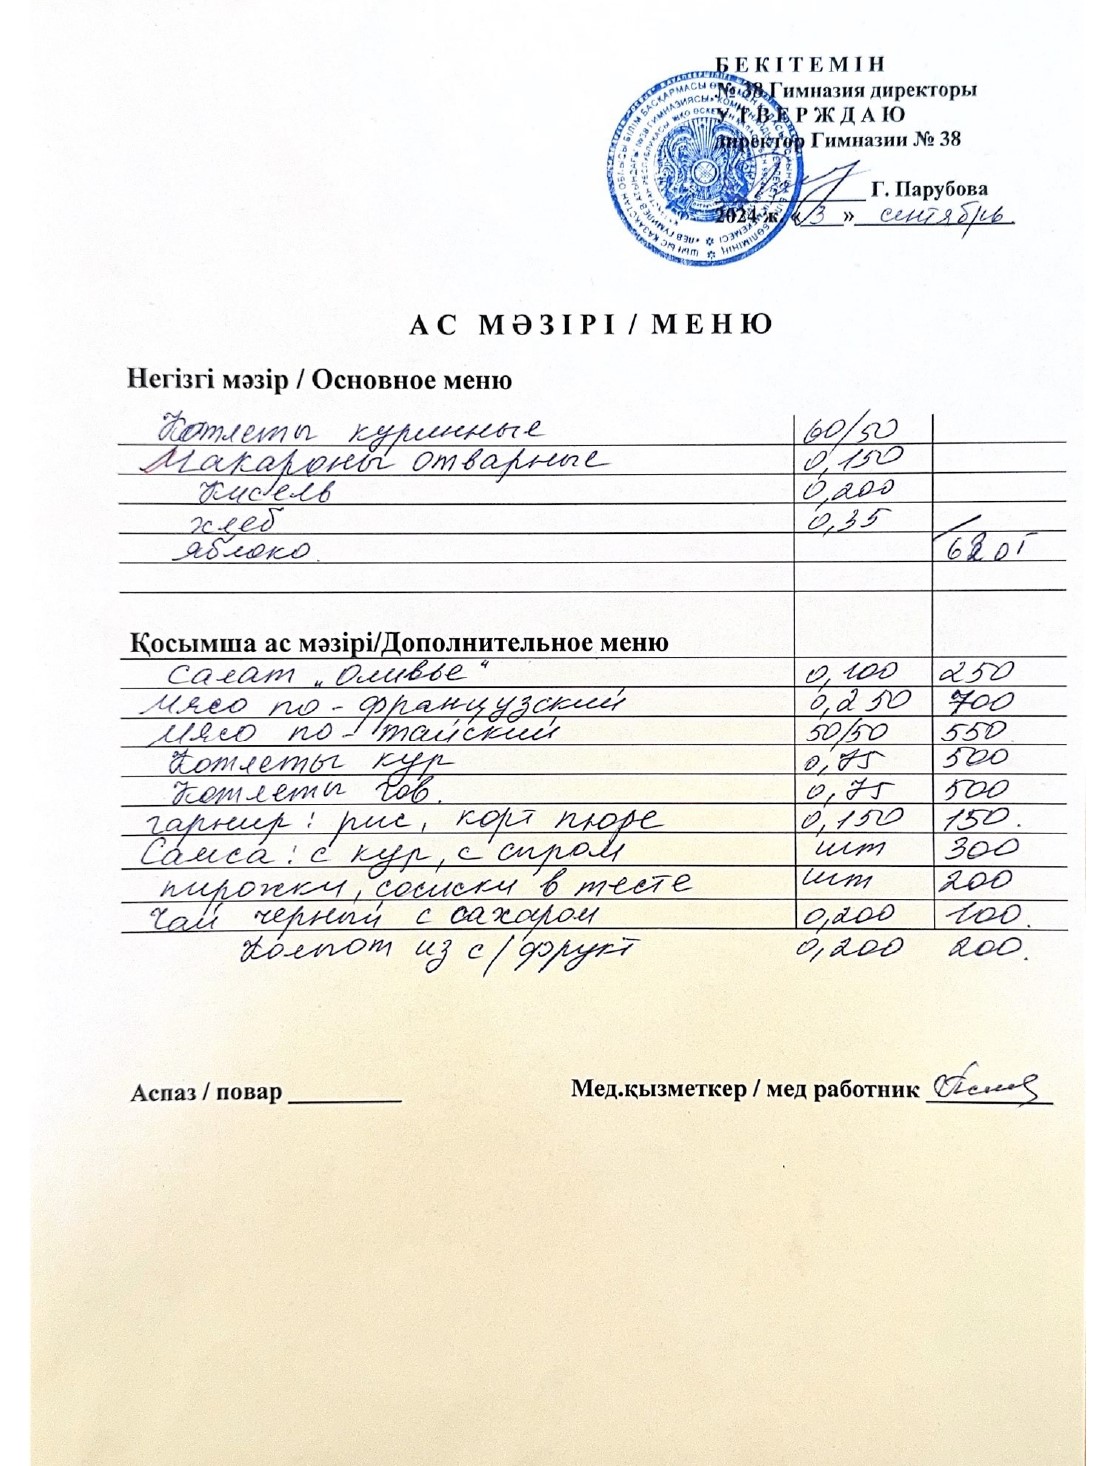 БЕКІТЕМІН
№ 38 Гимназия директоры
УТВЕРЖДАЮ
директор Гимназии № 38
Г. Парубова
2024 ж. «3» сентябрь
АС МӘЗІРІ / МЕНЮ
Негізгі мәзір / Основное меню
Котлеты куринные 60/50
Макароны отварные 0,150
Кисель 0,200
хлеб 0,35
яблоко
Қосымша ас мәзірі/Дополнительное меню
Салат „Оливье“ 0,100 250
Мясо по-французский 0,250 700
Мясо по-тайский 50/50 550
Котлеты кур 0,75 500
Котлеты гов. 0,75 500
гарнир: рис, карт пюре 0,150 150.
Самса: с кур, с сыром шт 300
пирожки, сосиски в тесте шт 200
Чай черный с сахаром 0,200 100.
Компот из с/фрукт 0,200 200.
Аспаз / повар Мед.қызметкер / мед работник